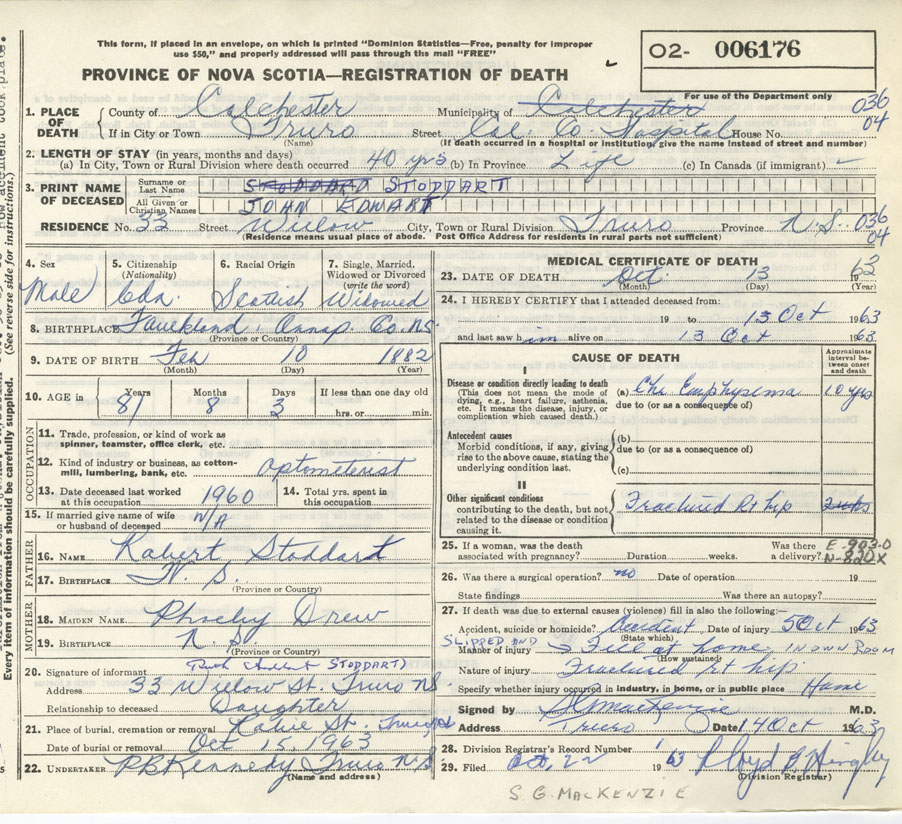 This form, if placed in an envelope, on which is printed "Dominion Statistics—Free, penalty for improper
use $50," and properly addressed will pass through the mail "FREE"
O2- 006176
PROVINCE OF NOVA SCOTIA—REGISTRATION OF DEATH
For use of the Department only
036
04
1. PLACE OF DEATH { County of Colchester Municipality of Colchester
If in City or Town Truro (Name) Street Col. Co. Hospital House No.
(If death occurred in a hospital or institution, give the name instead of street and number)
2. LENGTH OF STAY (in years, months and days)
(a) In City, Town or Rural Division where death occurred 40 yrs (b) In Province Life (c) In Canada (if immigrant) —
3. PRINT NAME OF DECEASED { Surname or Last Name STODDARD STODDART
All Given or Christian Names JOHN EDWART
RESIDENCE No. 33 Street Willow City, Town or Rural Division Truro Province N.S. 036
04
(Residence means usual place of abode. Post Office Address for residents in rural parts not sufficient)
4. Sex Male
5. Citizenship (Nationality) Cdn.
6. Racial Origin Scottish
7. Single, Married, Widowed or Divorced (write the word) Widowed
8. BIRTHPLACE Faulkland, Annap. Co. NS
(Province or Country)
9. DATE OF BIRTH Feb 10 1882
(Month) (Day) (Year)
10. AGE in { Years 81 Months 8 Days 3 If less than one day old
hrs. or min.
OCCUPATION
11. Trade, profession, or kind of work as spinner, teamster, office clerk, etc.
12. Kind of industry or business, as cotton-mill, lumbering, bank, etc. Optometerist
13. Date deceased last worked at this occupation 1960 14. Total yrs. spent in this occupation
15. If married give name of wife or husband of deceased N/A
FATHER
16. NAME Robert Stoddart
17. BIRTHPLACE N. S.
(Province or Country)
MOTHER
18. MAIDEN NAME Phoeby Drew
19. BIRTHPLACE N. S.
(Province or Country)
20. Signature of informant Ruth STODDART)
Address 33 Willow St. Truro NS.
Relationship to deceased Daughter
21. Place of burial, cremation or removal St. Truro
Date of burial or removal Oct 15, 1963
22. UNDERTAKER P B Kennedy Truro N.S
(Name and address)
MEDICAL CERTIFICATE OF DEATH
23. DATE OF DEATH Oct. 13 1963
(Month) (Day) (Year)
24. I HEREBY CERTIFY that I attended deceased from:
19 to 13 Oct 1963
and last saw him alive on 13 Oct 1963.
CAUSE OF DEATH
Approximate interval between onset and death
I
Disease or condition directly leading to death
(This does not mean the mode of dying, e.g., heart failure, asthenia, etc. It means the disease, injury, or complication which caused death.)
(a) Chr. Emphysema 10 yrs
due to (or as a consequence of)
Antecedent causes
Morbid conditions, if any, giving rise to the above cause, stating the underlying condition last.
(b)
due to (or as a consequence of)
(c)
II
Other significant conditions
contributing to the death, but not related to the disease or condition causing it.
Fractured Rt hip
25. If a woman, was the death associated with pregnancy? Duration weeks. Was there a delivery?
E-903-0
N-820X
26. Was there a surgical operation? no Date of operation 19
State findings Was there an autopsy?
27. If death was due to external causes (violence) fill in also the following:—
Accident, suicide or homicide? Accident Date of injury 5 Oct 1963
(State which)
SLIPPED AND
Manner of injury Fell at home IN OWN ROOM
(How sustained)
Nature of injury Fractured Rt hip
Specify whether injury occurred in industry, in home, or in public place Home
Signed by SG MacKenzie M.D.
Address Truro Date 14 Oct 1963
28. Division Registrar's Record Number
29. Filed Oct. 22 1963 Lloyd
(Division Registrar)
S. G. MACKENZIE
Every item of information should be carefully supplied. (See reverse side for instructions.)